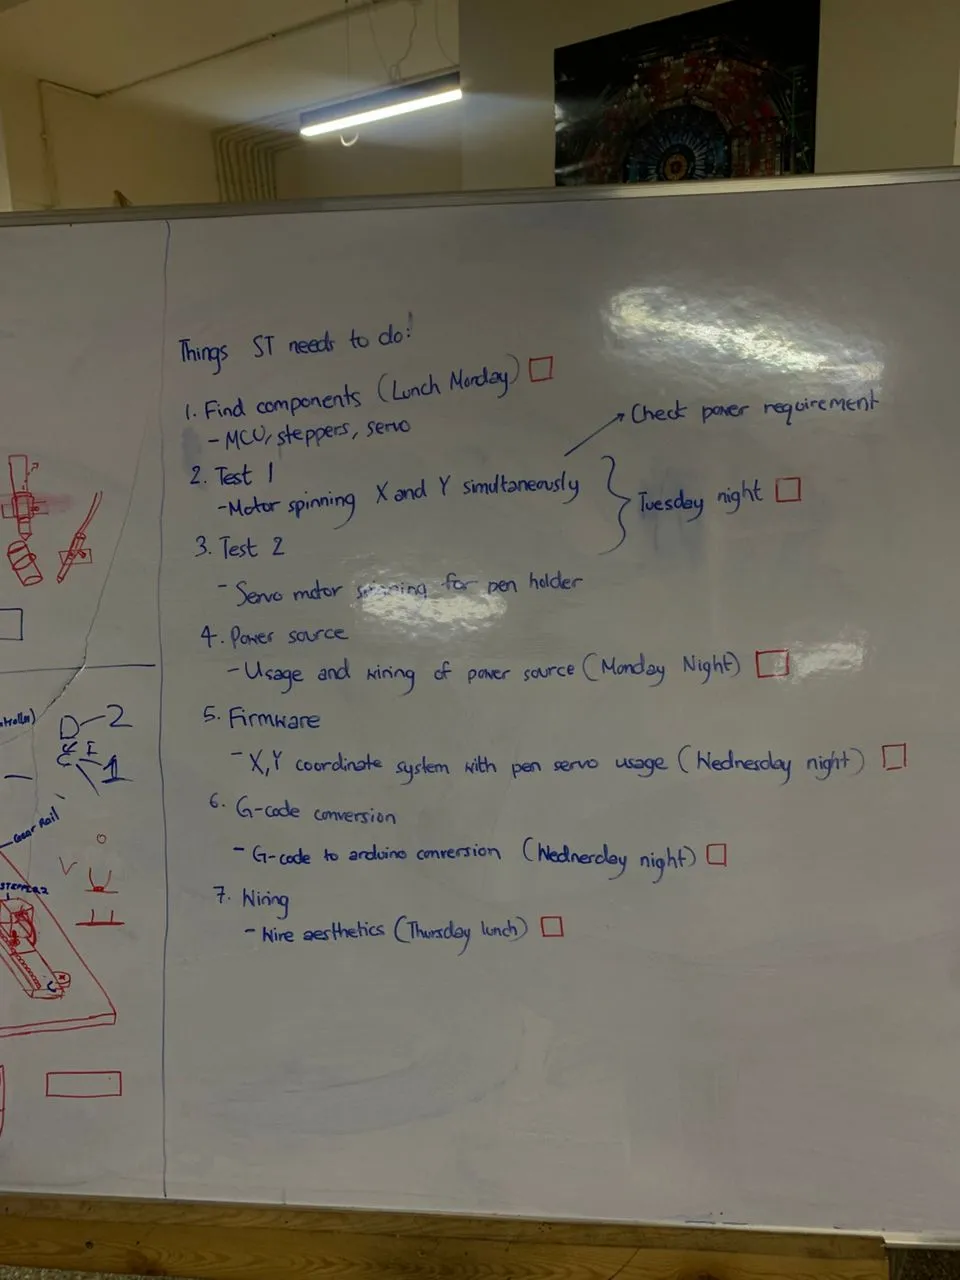 Things ST needs to do!
1. Find components (Lunch Monday)
- MCU, steppers, servo
2. Test 1
- Motor spinning X and Y simultaneously
Check power requirement
Tuesday night
3. Test 2
- Servo motor spinning for pen holder
4. Power source
- Usage and wiring of power source (Monday Night)
5. Firmware
- X,Y coordinate system with pen servo usage (Wednesday night)
6. G-code conversion
- G-code to arduino conversion (Wednerday night)
7. Wiring
- Wire aesthetics (Thursday lunch)
D-2
1
Gear Rail
STEPPER 2